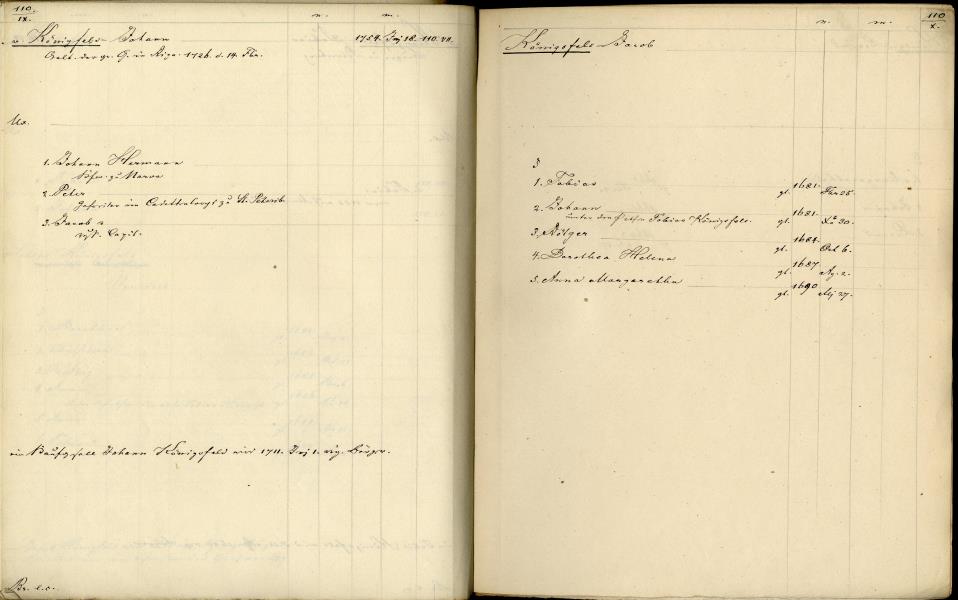 110.
IX.
n. m.
v. Königsfels Johann 1754. Juj 18. 110. VII.
Aelt. der gr. G. in Riga. 1726. d. 14. Fbr.
Ux.
1. Johann Hermann
Kfm. zu Narva
2. Peter
Gefreiter im Cadettencorps zu St. Petersb
3. Jacob
ein Kaufgesell Johann Königsfels wird 1711. Juj 1. rig. Bürger.
Br. l. c.
n. m. 110
X.
Königsfels Jacob
1. Tobias gt. 1681. Fbr 25.
2. Johann gt. 1681. Xbr 30.
unter dem Tobias Königsfels.
3. Rötger gt. 1684. Oct 6.
4. Dorothea Helena gt. 1687 Ag. 2.
5. Anna Margaretha gt. 1690 Mj 27.